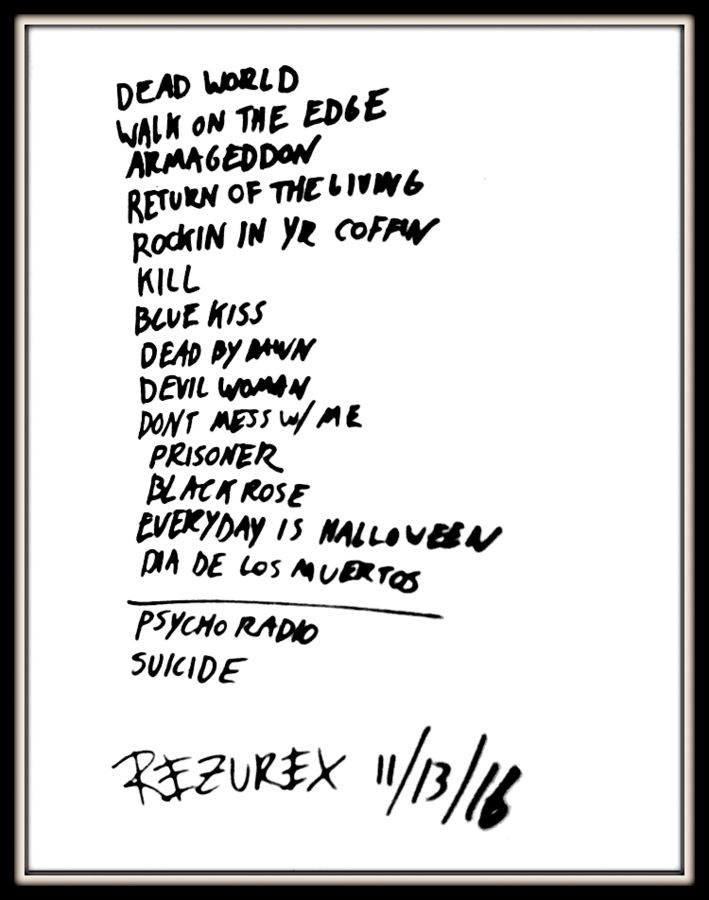 DEAD WORLD
WALK ON THE EDGE
ARMAGEDDON
RETURN OF THE LIVING
ROCKIN IN YR COFFIN
KILL
BLUE KISS
DEAD BY DAWN
DEVIL WOMAN
DONT MESS W/ ME
PRISONER
BLACK ROSE
EVERYDAY IS HALLOWEEN
DIA DE LOS MUERTOS
PSYCHO RADIO
SUICIDE
REZUREX 11/13/16